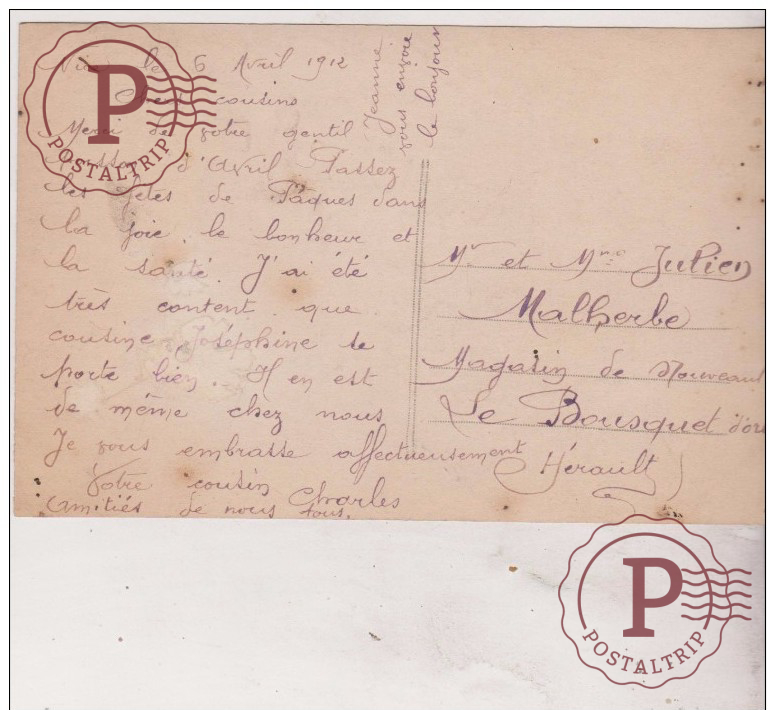 le 6 Avril 1912
cousins
Merci de votre gentil
d'Avril Passez
les fêtes de Pâques dans
la joie, le bonheur et
la santé. J'ai été
très content que
cousine Joséphine se
porte bien. Il en est
de même chez nous
Je vous embrasse affectueusement
Votre cousin
Charles
Amitiés de nous tous.
Jeanne
vous envoie
le bonjour
Mr et Mme Julien
Malherbe
Magasin de Nouveaut
Le Bousquet d'Orb
(Hérault)
P
POSTALTRIP
P
POSTALTRIP